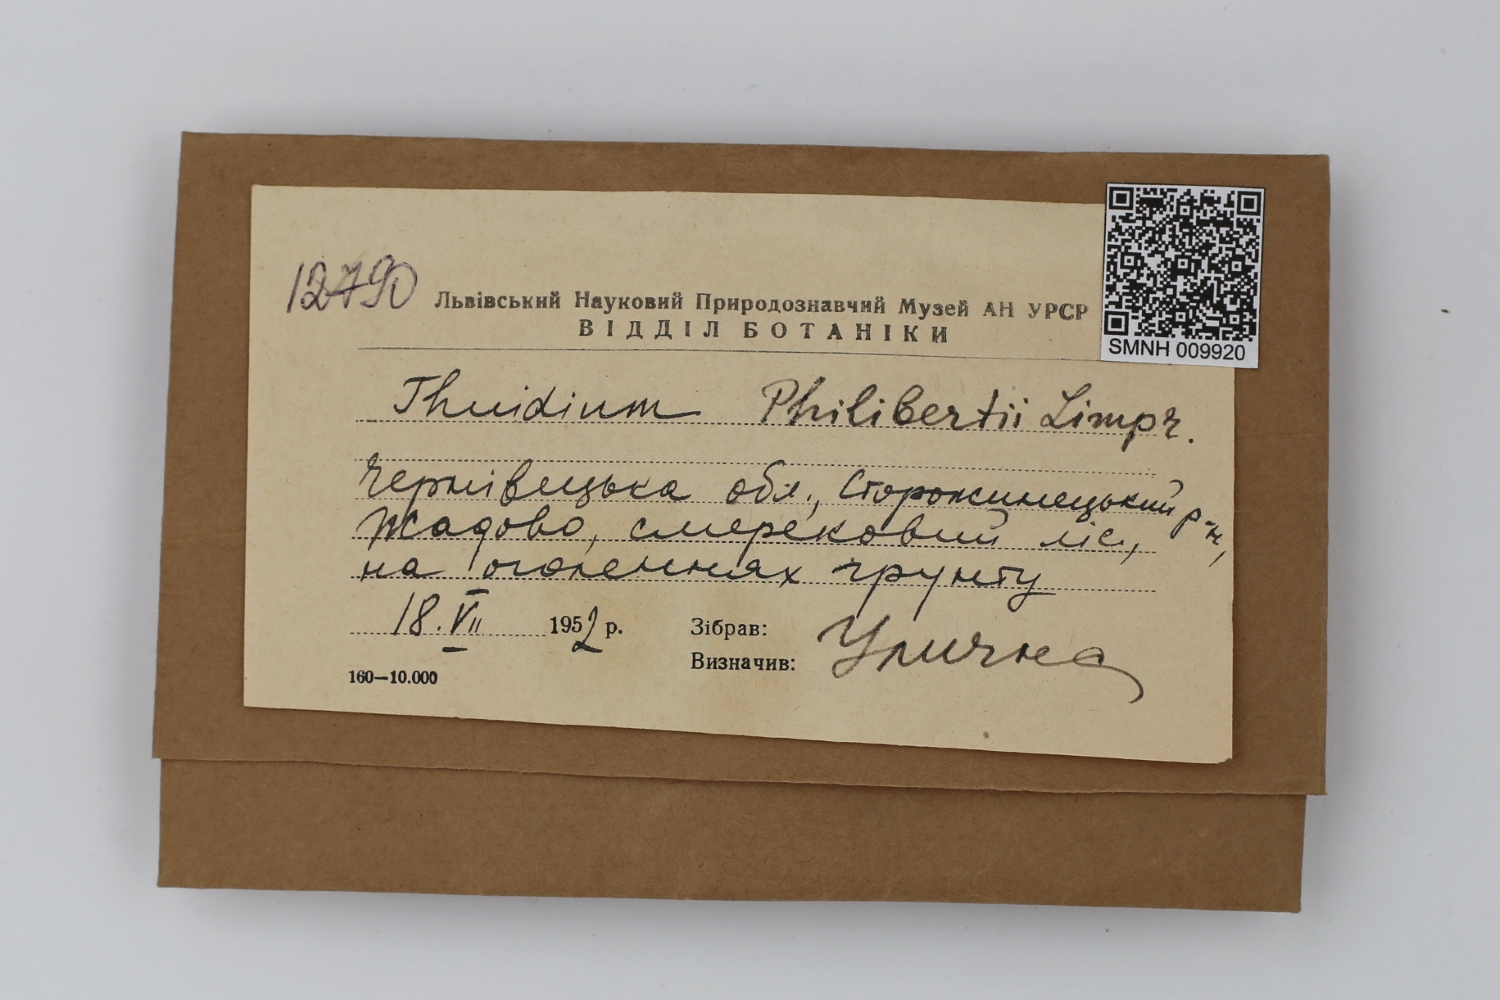 12790
Львівський Науковий Природознавчий Музей АН УРСР
ВІДДІЛ БОТАНІКИ
SMNH 009920
Thuidium Philibertii Limpr.
Чернівецька обл., Сторожинецький р-н,
Жадово, смерековий ліс,
на оголеннях грунту
18.VII 1952 р.
Зібрав:
Визначив: Уличка
160—10.000